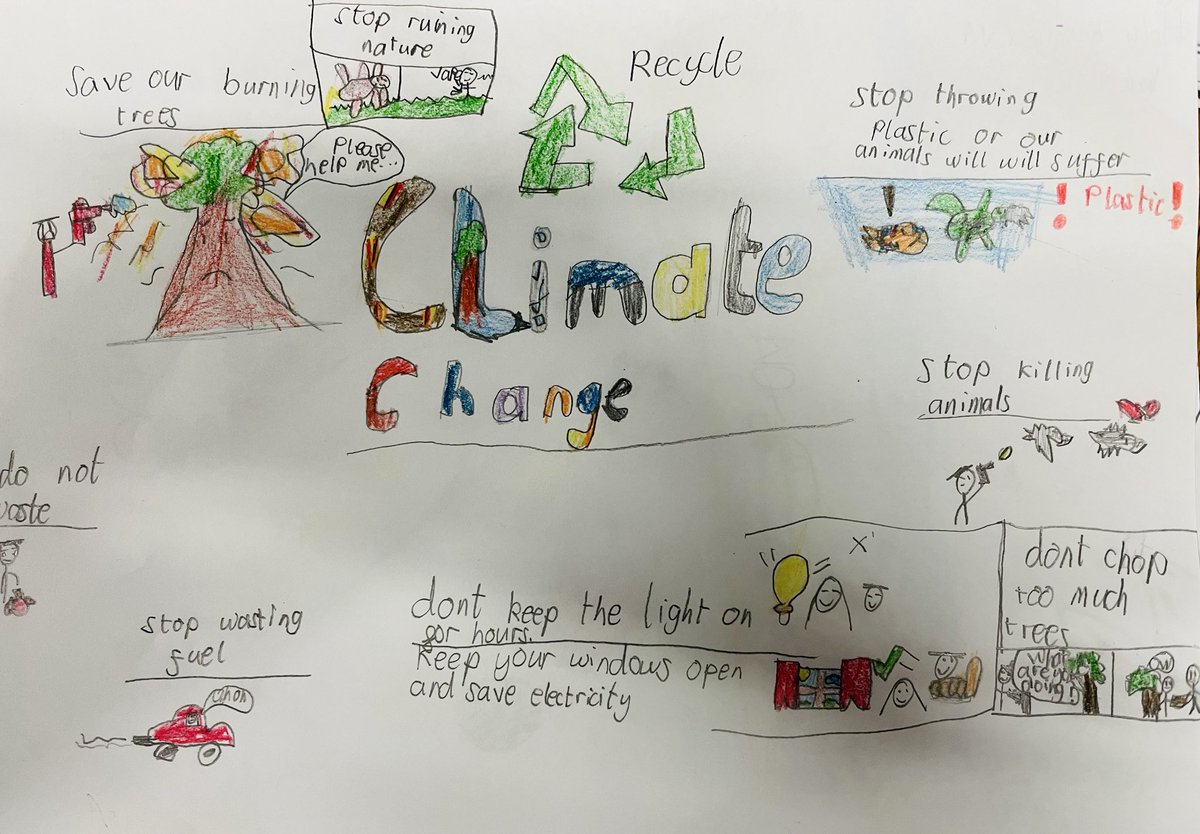 stop ruining
nature
Save our burning
trees
Please
help me...
Recycle
stop throwing
Plastic or our
animals will will suffer
! Plastic!
CLimate
Change
Stop killing
animals
do not
waste
stop wasting
fuel
dont keep the light on
for hours.
Keep your windows open
and save electricity
x
dont chop
too much
trees
What
are you
doing!